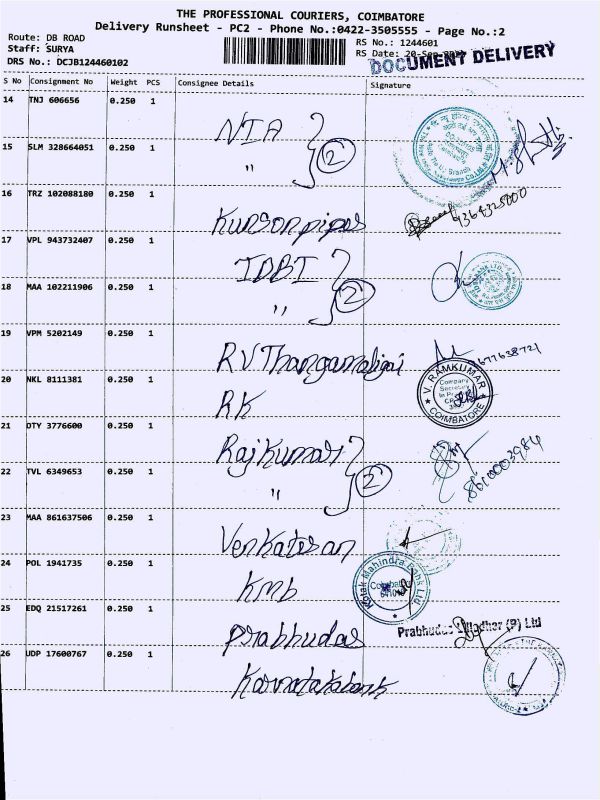 THE PROFESSIONAL COURIERS, COIMBATORE
Delivery Runsheet - PC2 - Phone No.:0422-3505555 - Page No.:2
Route: DB ROAD
Staff: SURYA
DRS No.: DCJB124460102
RS No.: 1244601
RS Date: 20-Sep
DOCUMENT DELIVERY
S No Consignment No Weight PCS Consignee Details Signature
14 TNJ 606656 0.250 1 NIA
15 SLM 328664051 0.250 1 " 2
16 TRZ 102088180 0.250 1 Kunsonpipes 9364325000
17 VPL 943732407 0.250 1 IDBI
18 MAA 102211906 0.250 1 " 2
19 VPM 5202149 0.250 1 R.V.Thangamaligai
20 NKL 8111381 0.250 1 RK
V. RAMKUMAR
Company
Secretary
COIMBATORE
21 DTY 3776600 0.250 1 Rajkumar
22 TVL 6349653 0.250 1 " 2 8610003984
23 MAA 861637506 0.250 1 Venkatesan
24 POL 1941735 0.250 1 KMB
Kotak Mahindra Bank Ltd
Coimbatore
25 EDQ 21517261 0.250 1 Prabhudas
Prabhudas Liladher (P) Ltd
26 UDP 17600767 0.250 1 Karnatakabank